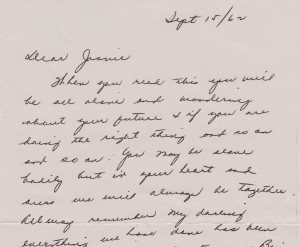 Sept 15/62
Dear Joanie
When you read this you will
be all alone and wondering
about your future & if you are
doing the right thing and so on
and so on. You may be alone
bodily but in your heart and
we will always be together.
Always remember my darling
everything we have done has been